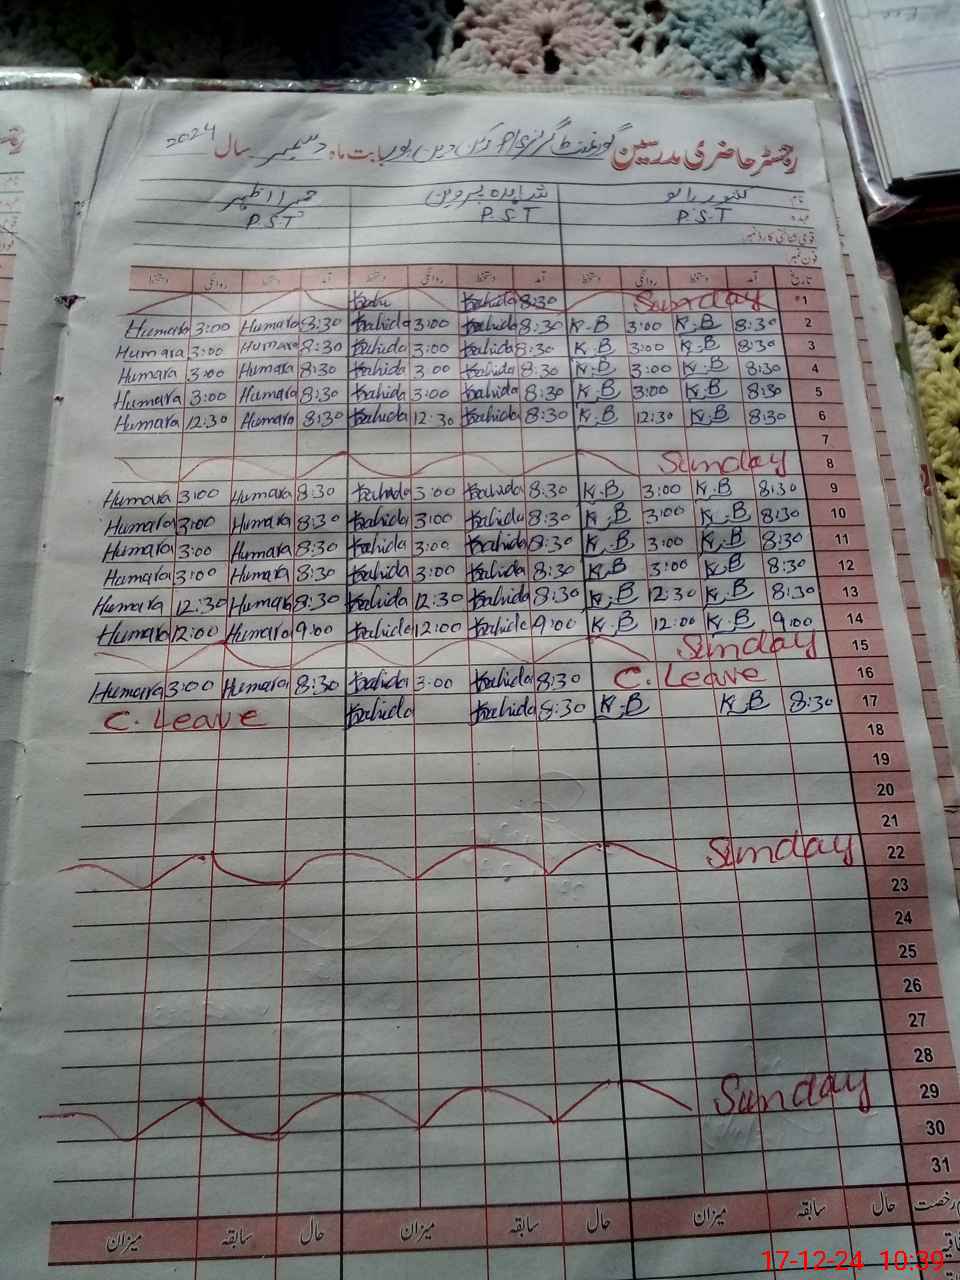 رجسٹر حاضری مدرسین گورنمنٹ گرلز P/S بابت ماہ دسمبر سال 2024
نام کشور بانو شاہدہ پروین حمیرا اظہر
عہدہ P.S.T P.S.T P.S.T
قومی شناختی کارڈ نمبر
فون نمبر
تاریخ آمد دستخط روانگی دستخط آمد دستخط روانگی دستخط آمد دستخط روانگی دستخط
8:30 Sunday 1
Humara 3:00 Humara 8:30 3:00 8:30 K.B 3:00 K.B 8:30 2
Humara 3:00 Humara 8:30 3:00 8:30 K.B 3:00 K.B 8:30 3
Humara 3:00 Humara 8:30 3:00 8:30 K.B 3:00 K.B 8:30 4
Humara 3:00 Humara 8:30 3:00 8:30 K.B 3:00 K.B 8:30 5
Humara 12:30 Humara 8:30 12:30 8:30 K.B 12:30 K.B 8:30 6
7
Sunday 8
Humara 3:00 Humara 8:30 3:00 8:30 K.B 3:00 K.B 8:30 9
Humara 3:00 Humara 8:30 3:00 8:30 K.B 3:00 K.B 8:30 10
Humara 3:00 Humara 8:30 3:00 8:30 K.B 3:00 K.B 8:30 11
Humara 3:00 Humara 8:30 3:00 8:30 K.B 3:00 K.B 8:30 12
Humara 12:30 Humara 8:30 12:30 8:30 K.B 12:30 K.B 8:30 13
Humara 12:00 Humara 9:00 12:00 9:00 K.B 12:00 K.B 9:00 14
Sunday 15
Humara 3:00 Humara 8:30 3:00 8:30 C. Leave 16
C. Leave 8:30 K.B K.B 8:30 17
18
19
20
21
Sunday 22
23
24
25
26
27
28
Sunday 29
30
31
رخصت حال سابقہ میزان حال سابقہ میزان حال سابقہ میزان
17-12-24 10:39